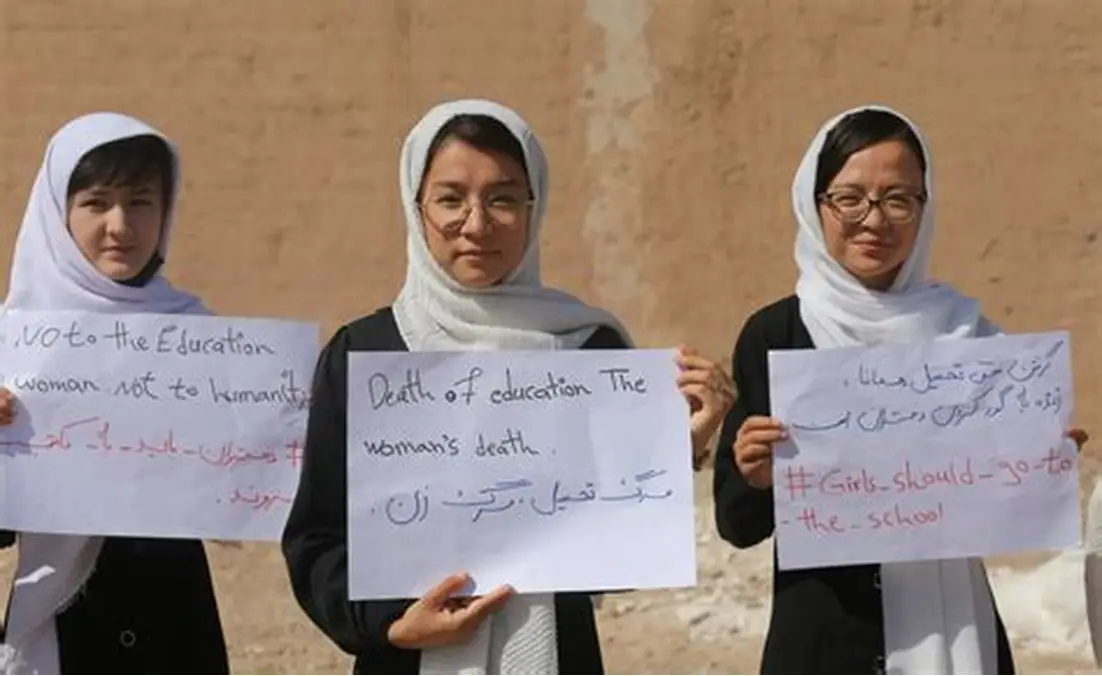 .NO to the Education
woman Not to humanity
# دختران_باید_به_مکتب
بروند.
Death of education The
woman's death.
مرگ تحصیل، مرگ زن.
گرفتن حق تحصیل همانا،
زنده به گور کردن دختران است
#Girls_should_go_to
-the_school